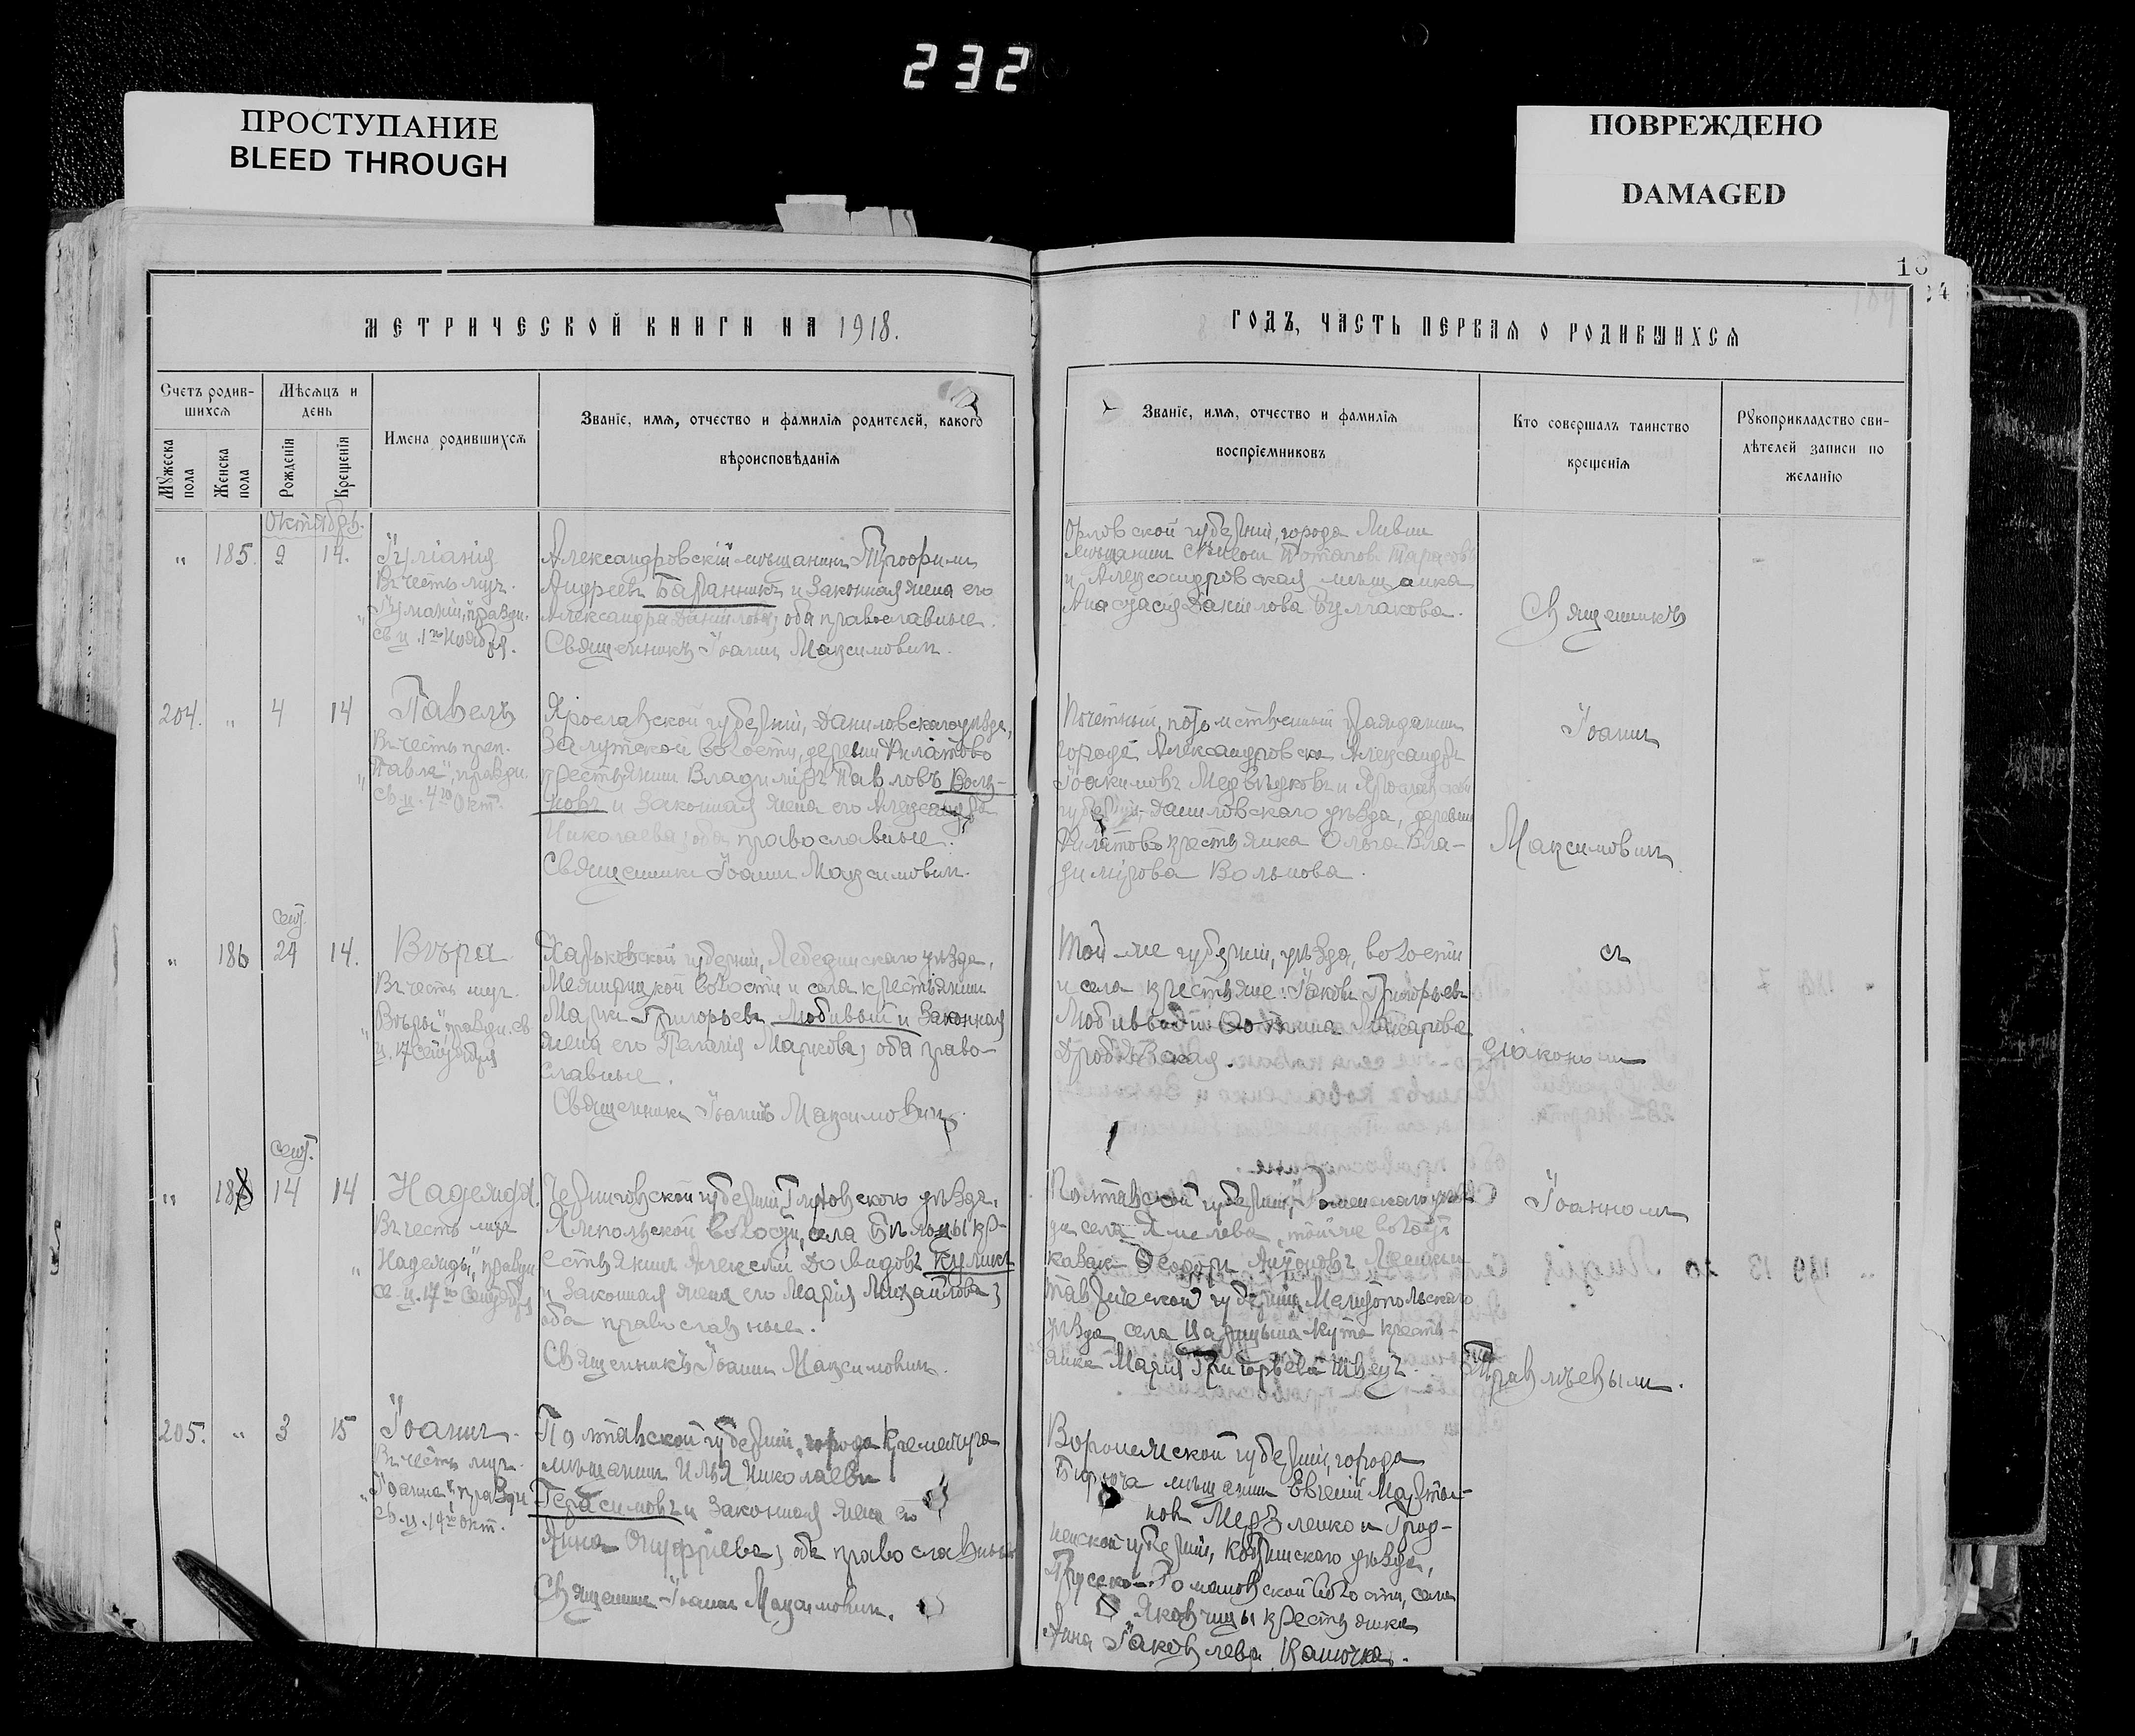 232
ПРОСТУПАНИЕ
BLEED THROUGH
ПОВРЕЖДЕНО
DAMAGED
МЕТРИЧЕСКОЙ КНИГИ НА 1918.
Счетъ родив-
шихся
Мѣсяцъ и
день
Мужеска пола
Женска пола
Рожденія
Крещенія
Имена родившихся
Званіе, имя, отчество и фамилія родителей, какого
вѣроисповѣданія
Октябрь.
" 185. 2 14.
Іуліанія
Въ честь муч.
"Іуліаніи", праздн.
св. ц. 1го Ноября.
Александровскій мѣщанинъ Трофимъ
Андреевъ Баранникъ и законная жена его
Александра Данилова, оба православные.
Священникъ Іоаннъ Максимовичъ.
204. " 4 14
Павелъ
Въ честь преп.
"Павла", праздн.
св. ц. 4го Окт.
Ярославской губерніи, Даниловскаго уѣзда,
волости, деревни Филатово
крестьянинъ Владиміръ Павловъ Воль-
новъ и законная жена его Александра
Николаева, оба православные.
Священникъ Іоаннъ Максимовичъ.
сент.
" 186 24 14.
Вѣра
Въ честь муч.
"Вѣры", праздн. св.
ц. 17 Сентября
Харьковской губерніи, Лебединскаго уѣзда,
Межирицкой волости и села крестьянинъ
Маркъ Григорьевъ Любивый и законная
жена его Пелагія Маркова, оба право-
славные.
Священникъ Іоаннъ Максимовичъ.
сент.
" 14 14
Надежда.
Въ честь муч.
"Надежды", праздн.
св. ц. 17го Сентября
Черниговской губерніи, Глуховского уѣзда,
Ямпольской волости, села кр-
естьянинъ Алексѣй Давидовъ Куликъ
и законная жена его Марія Михайлова,
оба православные.
Священникъ Іоаннъ Максимовичъ.
205. " 3 15
Іоаннъ.
Въ честь муч.
"Іоанна", праздн.
св. ц. Окт.
Полтавской губерніи, города Кременчуга
мѣщанинъ Илья Николаевъ
Герасимовъ и законная жена его
Анна Онуфріева, оба православные
Священникъ Іоаннъ Максимовичъ.
ГОДЪ, ЧАСТЬ ПЕРВАЯ О РОДИВШИХСЯ
Званіе, имя, отчество и фамилія
воспріемниковъ
Кто совершалъ таинство
крещенія
Рукоприкладство сви-
дѣтелей записи по
желанію
Орловской губерніи, города Ливны
мѣщанинъ Потаповъ Тарасовъ
и Александровская мѣщанка
Анастасія Данилова Булгакова.
Почетный, потомственный гражданинъ
города Александровска Александръ
Іоакимовъ Медвѣдковъ и Ярославской
губерніи, Даниловскаго уѣзда, деревни
Филатово крестьянка Ольга Вла-
димірова Вольнова.
Той-же губерніи, уѣзда, волости
и села крестьяне: Іаковъ Григорьевъ
Макарова
Полтавской губерніи, Роменскаго уѣз-
да села той же волости
казакъ Ѳеодоръ Антоновъ
Таврической губерніи Мелитопольскаго
уѣзда, села Царицына-Кута кресть-
янка Марія Григорьева Швецъ.
Воронежской губерніи, города
Бирюча мѣщанинъ Евгеній Марты-
новъ и Грод-
ненской губерніи, Кобринскаго уѣзда,
волости, села
крестьянка
Анна Іаковлева
Священникъ
Іоаннъ
Максимовичъ
съ
діакономъ
Іоанномъ